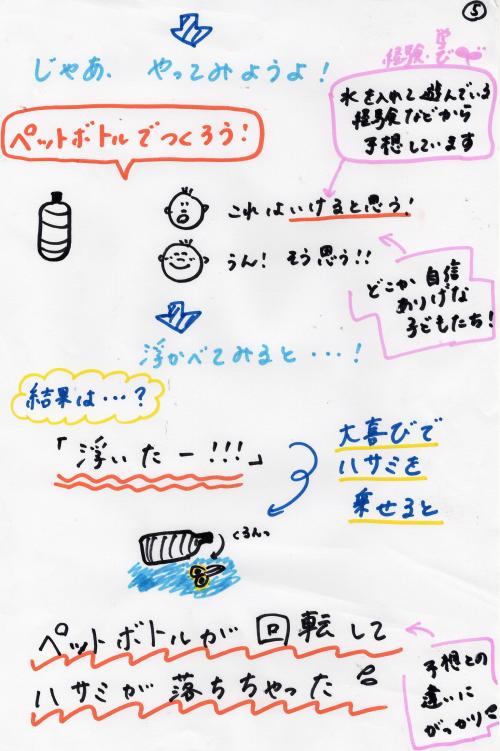 ⑤
じゃあ、やってみようよ!
経験・学び
ペットボトルでつくろう!
水を入れて遊んでいる
経験などから
予想しています
これはいけると思う!
うん! そう思う!!
どこか自信
ありげな
子どもたち!
浮かべてみると・・・!
結果は・・・?
「浮いたー!!!」
大喜びで
ハサミを
乗せると
くるんっ
ペットボトルが回転して
ハサミが落ちちゃった
予想との
違いに
がっかり